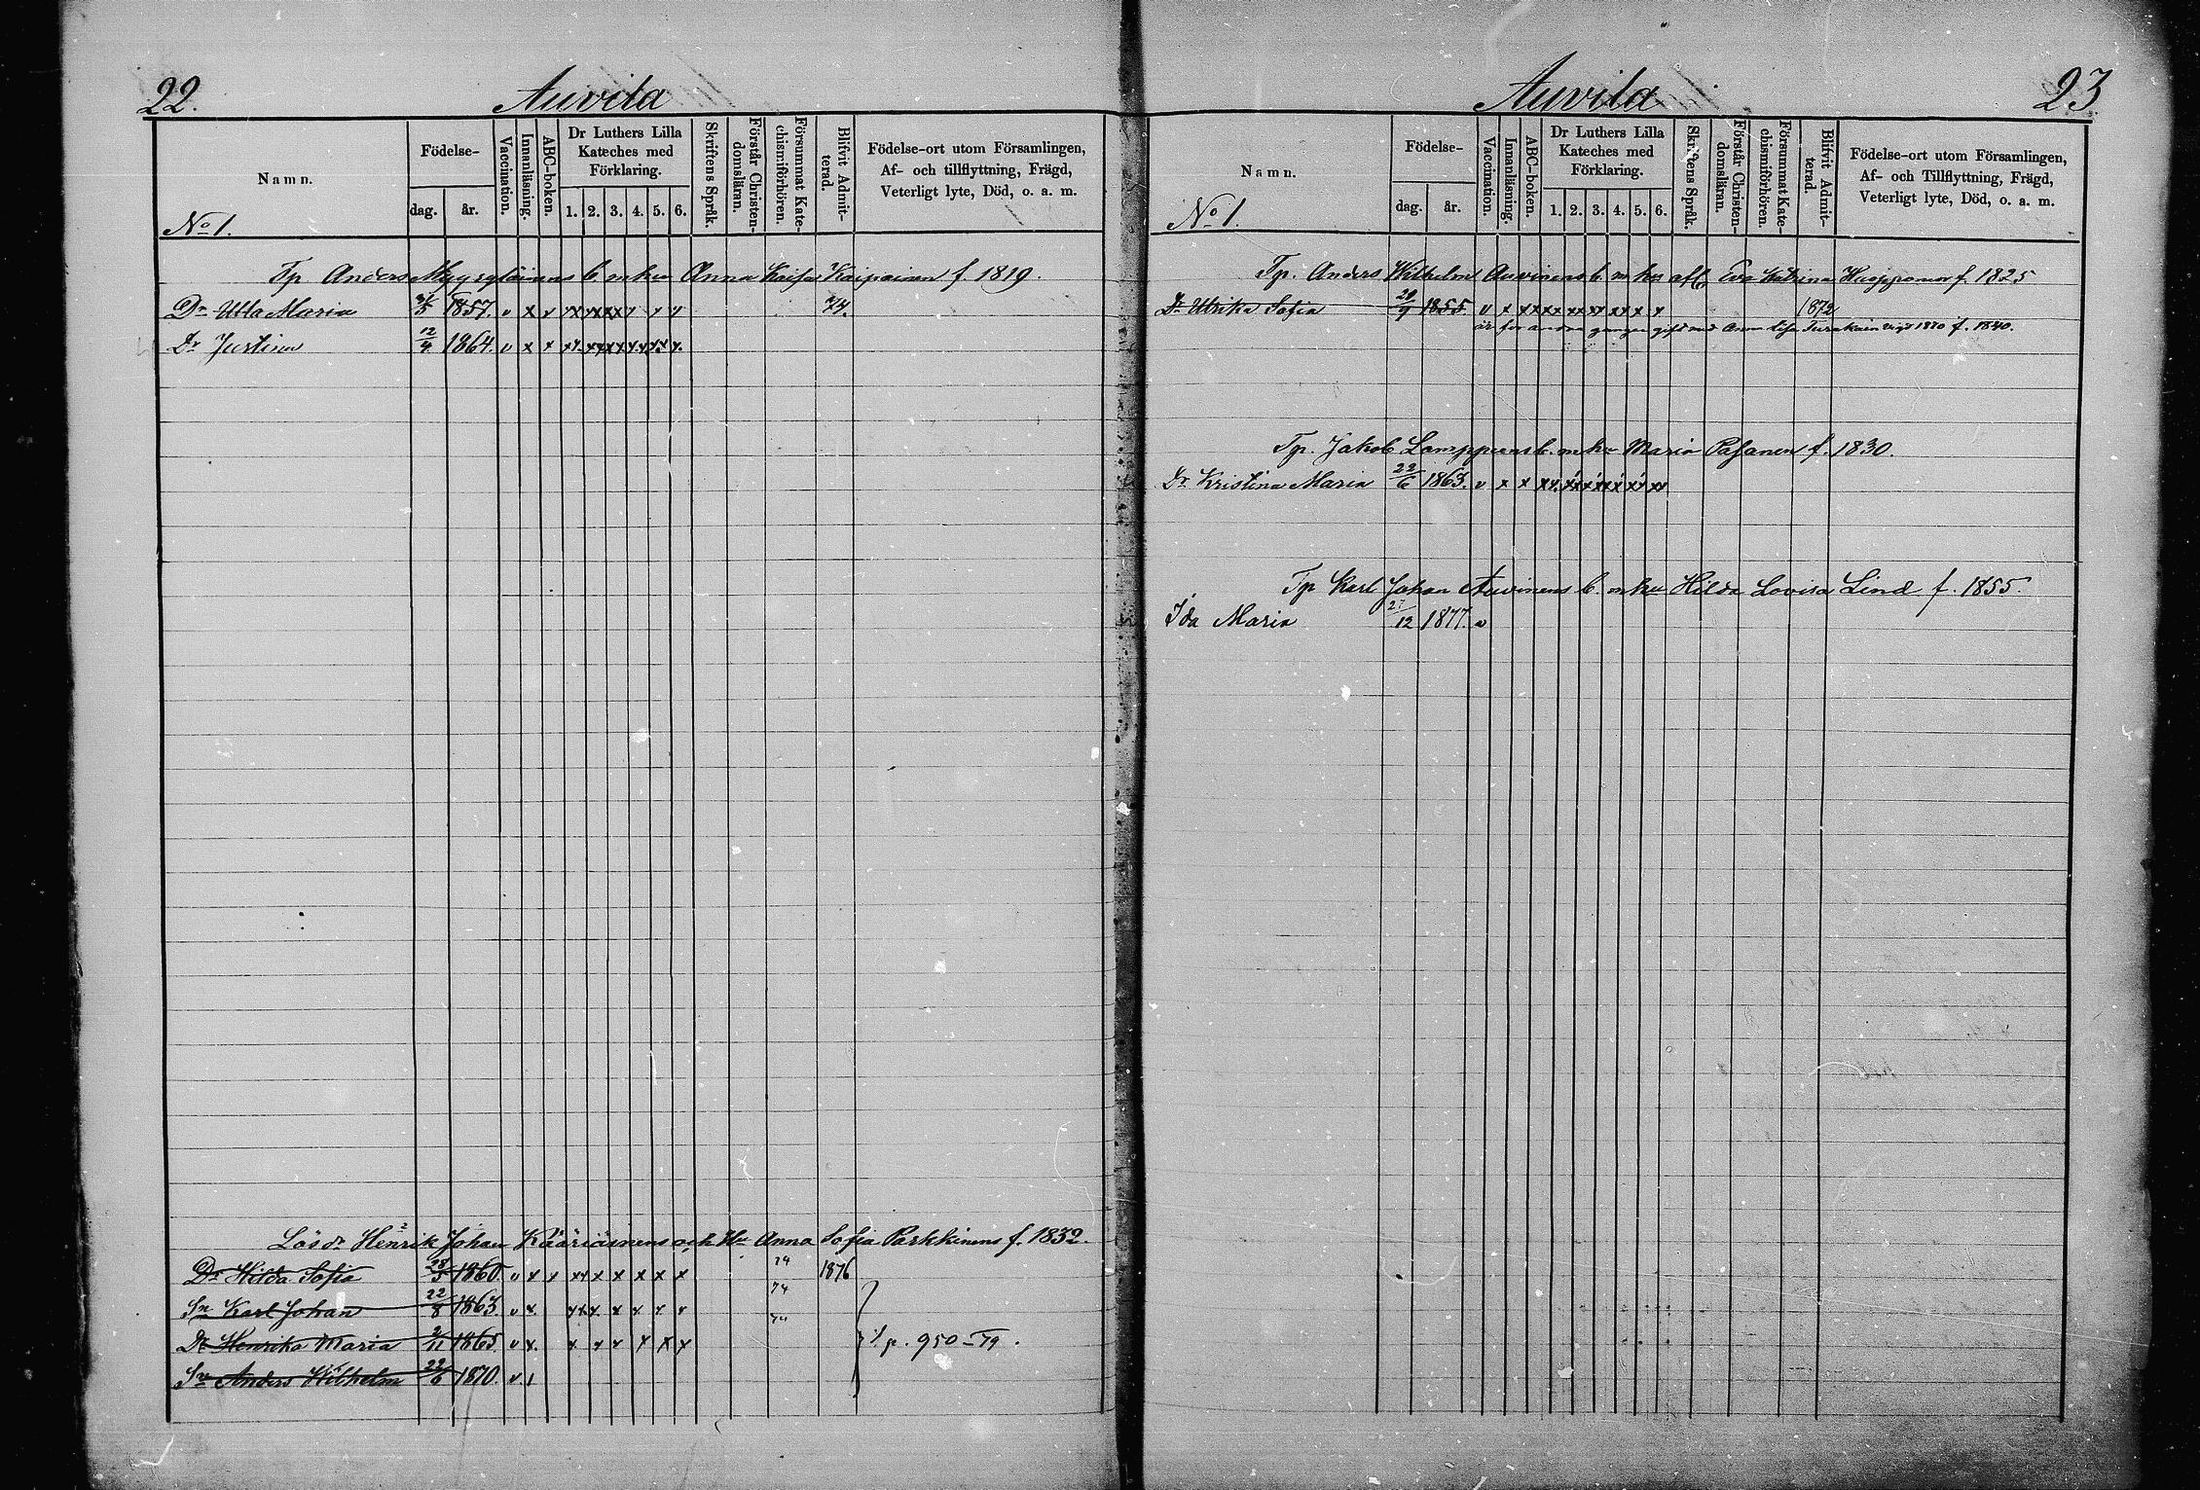 22.
Auvila
Namn.
Födelse-
dag.
år.
Vaccination.
Innanläsning.
ABC-boken.
Dr Luthers Lilla
Kateches med
Förklaring.
1. 2. 3. 4. 5. 6.
Skriftens Språk.
Förstår Christen-
domsläran.
Försummat Kate-
chismiförhören.
Blifvit Admit-
terad.
Födelse-ort utom Församlingen,
Af- och tillflyttning, Frägd,
Veterligt lyte, Död, o. a. m.
No 1.
Tp Anders b. m hu Anna Kaisa Kaipainen f. 1819.
Dr Ulla Maria 1857. v x v 74.
Dr Justina 12/4 1864. v x x
Lösdr Henrik Johan Kääriäinens och Hu Anna Sofia Parkkinens f. 1832.
Dr Hilda Sofia 28/5 1860 v x x 74 1876
Sn Karl Johan 22/8 1863. v x. 74
Dr Henrika Maria 2/11 1865 v x. 74 p. 950-79.
Sn Anders Wilhelm 22/6 1870. v. 1
Auvila
23
Namn.
Födelse-
dag.
år.
Vaccination.
Innanläsning.
ABC-boken.
Dr Luthers Lilla
Kateches med
Förklaring.
1. 2. 3. 4. 5. 6.
Skriftens Språk.
Förstår Christen-
domsläran.
Försummat Kate-
chismiförhören.
Blifvit Admit-
terad.
Födelse-ort utom Församlingen,
Af- och Tillflyttning, Frägd,
Veterligt lyte, Död, o. a. m.
No 1.
Tp. Anders Wilhelm Auvinens b. m hu afl. Eva Katrina Huopponen f. 1825
Dr Ulrika Sofia 20/9 1855 v x 1872
är för andra gången gift med Anna Lisa f. 1840.
Tp. Jakob Lamppuens b. m hu Maria Pasanen f. 1830.
Dr Kristina Maria 22/6 1863. v x x
Tp Karl Johan Auvinens b. m hu Hilda Lovisa Lind f. 1855.
Ida Maria 27/12 1877. v